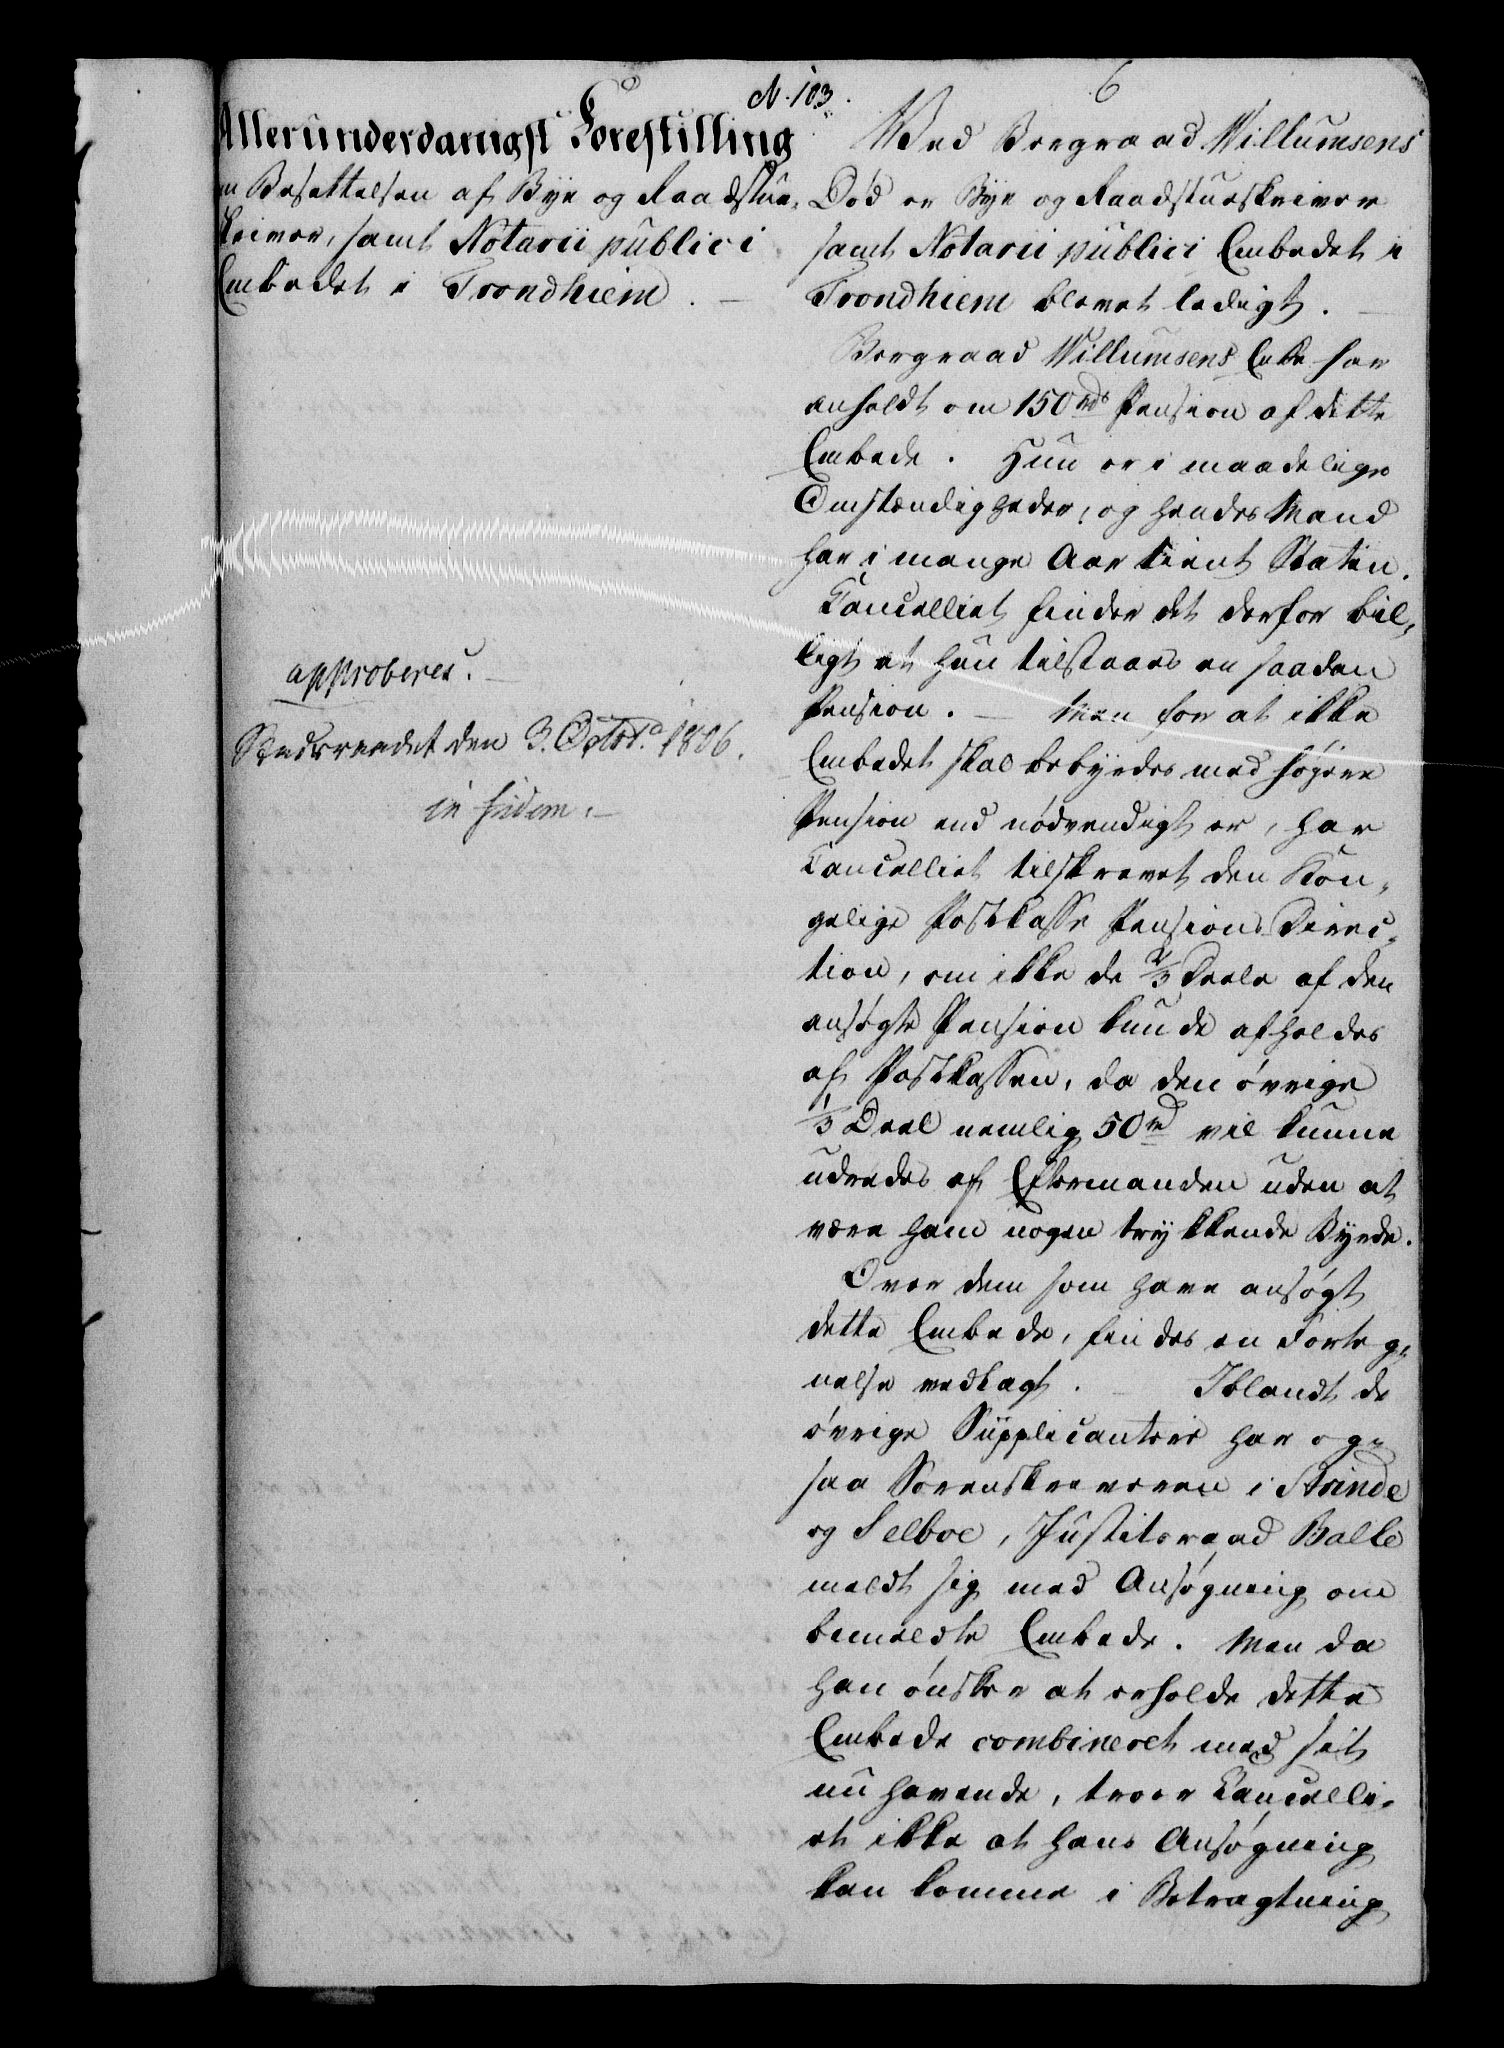 N. 103.
6
Allerunderdanigst Forestilling
m Besættelsen af Bye og Raadstue-
skriver, samt Notarii publici
Embedet i Trondhiem. —
approberes. —
den 3. Octob. 1806.
in fidem. —
Ved Borgraad Willumsens
Død er Bye og Raadstueskriver
samt Notarii publici Embedet i
Trondhiem blevet ledigt. —
Borgraad Willumsens Enke har
anholdt om 150 rd Pension af dette
Embede. Hun er i maadelige
Omstændigheder, og hendes Mand
har i mange Aar tient Staten.
Cancelliet finder det derfor bil-
ligt at hun tilstaaes en saadan
Pension. — Men for at ikke
Embedet skal bebyrdes med høyere
Pension end nødvendigt er, har
Cancelliet tilskrevet den Kon-
gelige Postkasse Pensions Direc-
tion, om ikke de 2/3 Deele af den
ansøgte Pension kunde afholdes
af Postkassen, da den øvrige
1/3 Deel nemlig 50 rd vil kunne
udredes af Eftermanden uden at
være ham nogen trykkende Byrde.
Over dem som have ansøgt
dette Embede, findes en Forteg-
nelse vedlagt. — Iblandt de
øvrige Supplicantere har og-
saa Sorenskriveren i Strinde
og Selboe, Justitsraad Balle
meldt sig med Ansøgning om
bemeldte Embede. Men da
han ønsker at erholde dette
Embede combineret med sit
nu havende, troer Cancelli-
et ikke at hans Ansøgning
kan komme i Betragtning